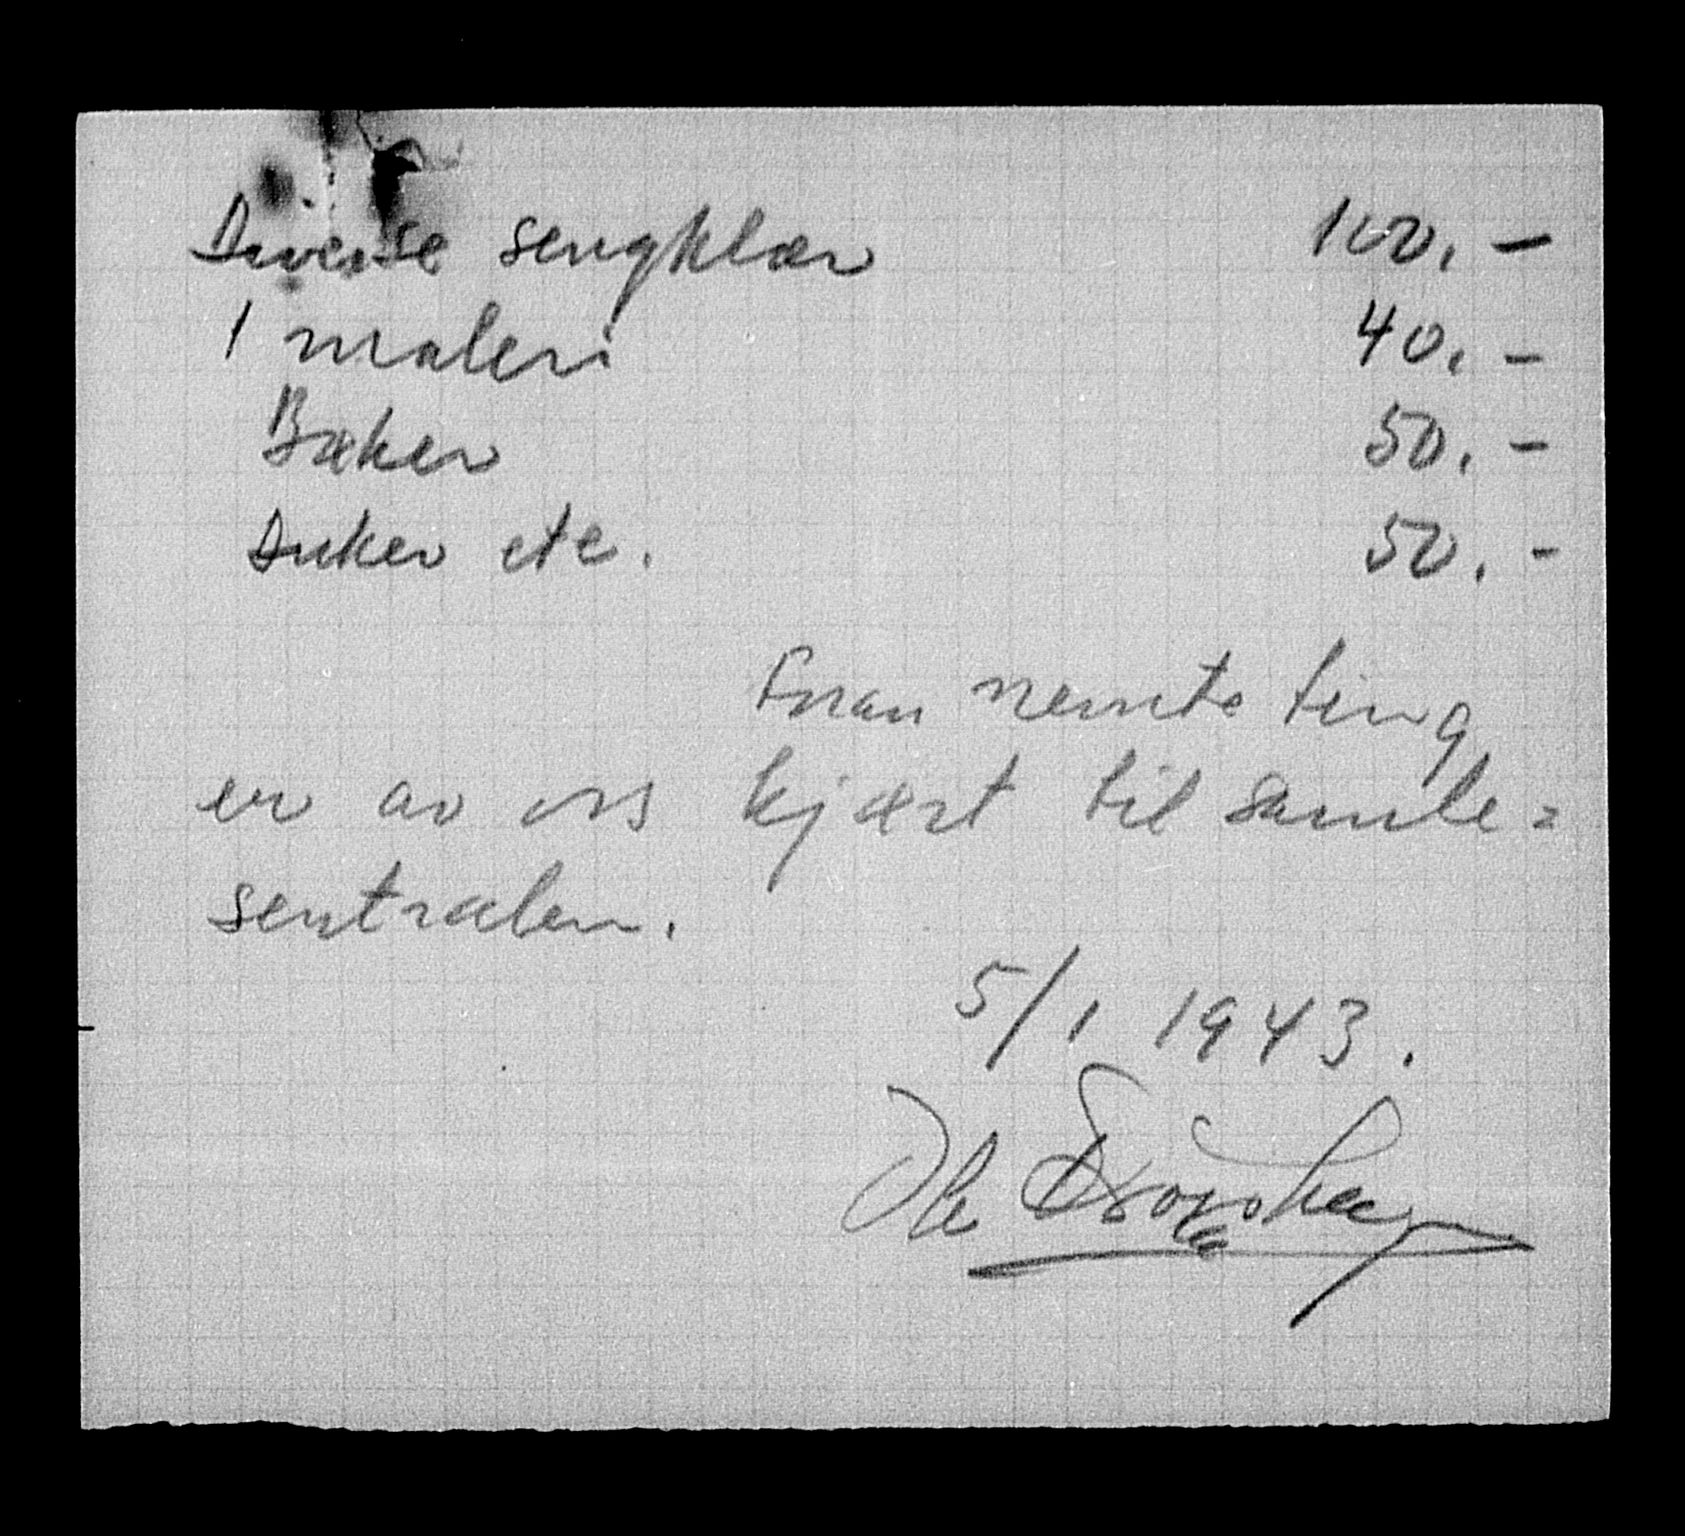 Diverse sengklær 100.-
1 maleri 40.-
Bøker 50.-
Duker etc. 50.-
Foran nevnte ting
er av oss kjørt til samle=
sentralen.
5/1 1943.
Ole